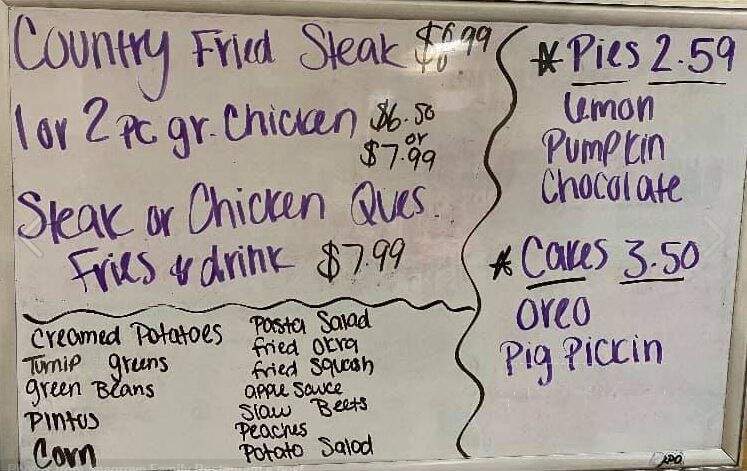 Country Fried Steak $6.99
1 or 2 pc gr. Chicken $6.50
or
$7.99
Steak or Chicken Ques.
Fries & drink $7.99
Creamed Potatoes
Turnip greens
green Beans
Pintos
Corn
Pasta Salad
fried okra
fried Squash
apple Sauce
Slaw Beets
Peaches
Potato Salad
* Pies 2.59
Lemon
Pumpkin
Chocolate
* Cakes 3.50
Oreo
Pig Pickin